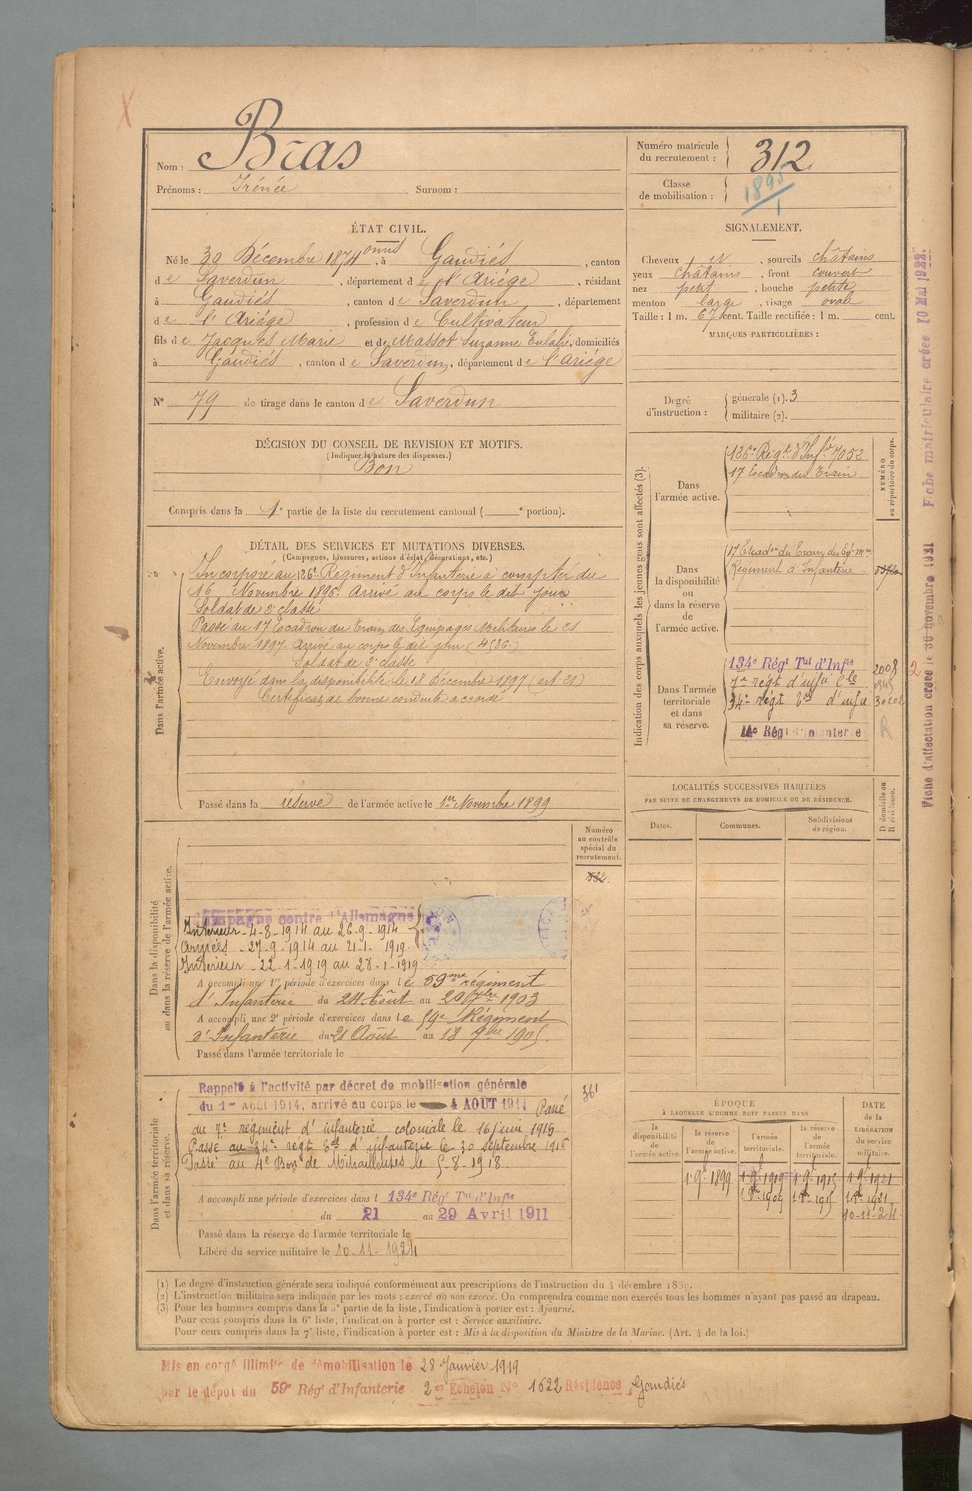 Nom : Bras
Prénoms : Irénée Surnom :
Numéro matricule du recrutement : 312
Classe de mobilisation : 1895
1
ÉTAT CIVIL.
Né le 30 Décembre 1874, à Gaudiés, canton
de Saverdun, département de l'Ariége, résidant
à Gaudiés, canton de Saverdun, département
de l'Ariége, profession de Cultivateur
fils de Jacques Marie et de Massot Suzanne Eulalie, domiciliés
à Gaudiés, canton de Saverdun, département de l'Ariége
N° 79 de tirage dans le canton de Saverdun
SIGNALEMENT.
Cheveux , sourcils châtains
yeux châtains, front couvert
nez petit, bouche petite
menton large, visage ovale
Taille : 1 m. 67 cent. Taille rectifiée : 1 m. cent.
MARQUES PARTICULIÈRES :
Degré d'instruction : générale (1). 3
militaire (2).
DÉCISION DU CONSEIL DE REVISION ET MOTIFS.
(Indiquer la nature des dispenses.)
Bon
Compris dans la 1e partie de la liste du recrutement cantonal ( e portion).
DÉTAIL DES SERVICES ET MUTATIONS DIVERSES.
(Campagnes, blessures, actions d'éclat, décorations, etc.)
Dans l'armée active.
Incorporé au 126e Régiment d'Infanterie à compter du
16 Novembre 1895. Arrivé au corps le dit jour
Soldat de 2e classe
Passé au 17 Escadron du Train des Equipages Militaires le 21
Novembre 1897. Arrivé au corps le dit jour (4536)
Soldat de 2e classe
Envoyé dans la disponibilité le 18 Décembre 1897 (art 21)
Certificat de bonne conduite accordé
Passé dans la réserve de l'armée active le 1er Novembre 1899
Indication des corps auxquels les jeunes gens sont affectés (3).
NUMÉRO au répertoire du corps.
Dans l'armée active.
126e Régt d'Infie 7052
17 Escadron du Train
Dans la disponibilité ou dans la réserve de l'armée active.
17 Escadon du Train des Eq. Mres
Régiment d'Infanterie
Dans l'armée territoriale et dans sa réserve.
134e Régt Tal d'Infie 2008
7e regt d'infie Cle
34e regt d'infie
14e Régt Infanterie
R
2
LOCALITÉS SUCCESSIVES HABITÉES
PAR SUITE DE CHANGEMENTS DE DOMICILE OU DE RÉSIDENCE.
Dates. Communes. Subdivisions de région. D domicile ou R résidence.
Numéro au contrôle spécial du recrutement.
Dans la disponibilité ou dans la réserve de l'armée active.
Campagne contre l'Allemagne
Intérieur - 4-8-1914 au 26-9-1914
Armées - 27-9-1914 au 21-1-1919
Intérieur - 22-1-1919 au 28-1-1919
A accompli une 1re période d'exercices dans le 59me régiment
d'Infanterie du 24 Août au 20 7bre 1903
A accompli une 2e période d'exercices dans le 59e Régiment
d'Infanterie du 21 Août au 18 7bre 1905.
Passé dans l'armée territoriale le
Dans l'armée territoriale et dans sa réserve.
Rappelé à l'activité par décret de mobilisation générale
du 1er Août 1914, arrivé au corps le 4 AOUT 1914 Passé
au 7e regiment d'infanterie coloniale le 16 juin 1915
Passé au 34e regt d'infanterie le 30 Septembre 1916
Passé au 4e Bon de Mitrailleuses le 5-8-1918.
361
A accompli une période d'exercices dans l 134e Régt Tal d'Infie
du 21 au 29 Avril 1911
Passé dans la réserve de l'armée territoriale le
Libéré du service militaire le 10-11-1924
ÉPOQUE
À LAQUELLE L'HOMME DOIT PASSER DANS
la disponibilité de l'armée active. la réserve de l'armée active. l'armée territoriale. la réserve de l'armée territoriale.
DATE de la LIBÉRATION du service militaire.
1-9-1899 1-9-1915 1-9-1921
1-8-1909 1-8-1915 1-8-1921
10-11-24
(1) Le degré d'instruction générale sera indiqué conformément aux prescriptions de l'instruction du 4 décembre 1889.
(2) L'instruction militaire sera indiquée par les mots : exercé ou non exercé. On comprendra comme non exercés tous les hommes n'ayant pas passé au drapeau.
(3) Pour les hommes compris dans la 5e partie de la liste, l'indication à porter est : Ajourné.
Pour ceux compris dans la 6e liste, l'indication à porter est : Service auxiliaire.
Pour ceux compris dans la 7e liste, l'indication à porter est : Mis à la disposition du Ministre de la Marine. (Art. 4 de la loi.)
Mis en congé illimité de démobilisation le 28 Janvier 1919
par le dépôt du 59e Régt d'Infanterie 2e Echelon N° 1622 Résidence Gaudiés
Fiche d'affectation créée le 30 novembre 1921 Fiche matriculaire créée 10 Mai 1922.